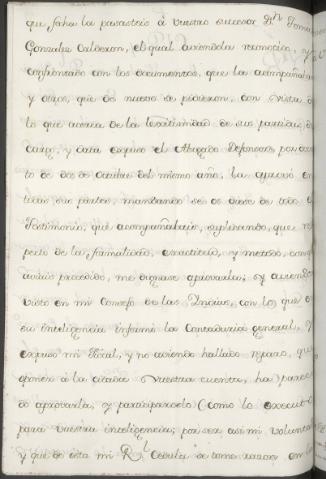 que fecha la pasasteis à vuestro sucesor Dn. Tomas
Gonzales Calderon, el qual aviendola reconocido, y
confrontado con los documentos, que la acompañaban
y otros, que de nuevo se pidieron, con vista de
lo que acerca de la lexitimidad de sus partidas de
cargo, y data expuso el Abogado Defensor, por auto
to de dos de Octubre del mismo año, la aprovò en
todas sus partes, mandando se os diese de todo el
Testimonio, que acompañabais, suplicando, que res
pecto de la formalidad, exactitud, y metodo, con que
aviais procedido, me dignase aprovarla; y aviendose
visto en mi Consejo de las Indias, con lo que en
su inteligencia informò la Contaduria general, y
expuso mi Fiscal; y no aviendo hallado reparo, que
oponer à la citada vuestra cuenta, ha pareci
do aprovarla, y participaroslo (como lo executo)
para vuestra inteligencia; por ser asi mi voluntad
y que de esta mi Rl. Cedula se tome razon en la